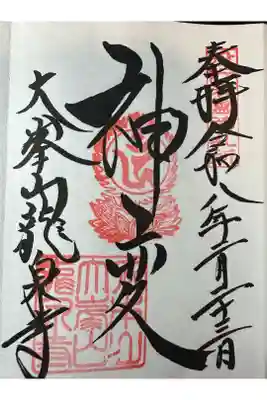 奉拝 令和八年二月二十三日
神変
大峯山龍泉寺